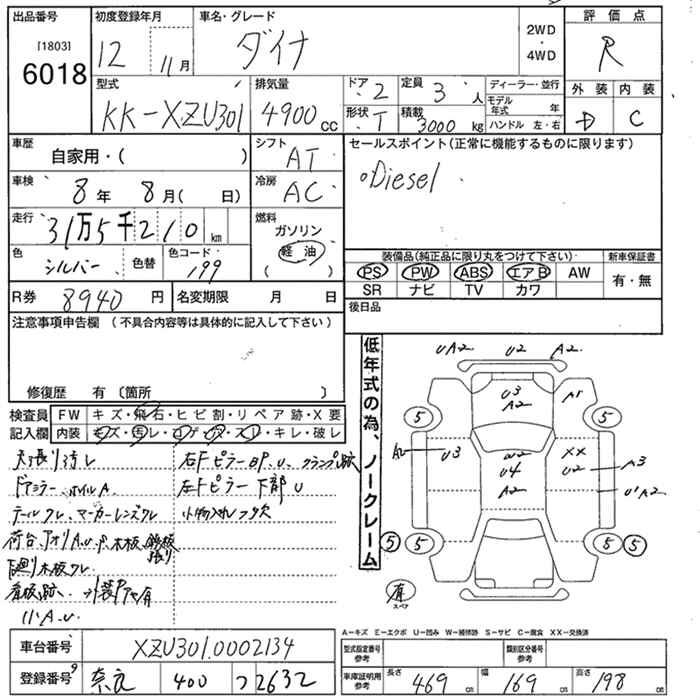 出品番号 初度登録年月 車名・グレード 評価点
[1803] 6018 12 11月 ダイナ 2WD・4WD R
型式 排気量 ドア 2 定員 3人 ディーラー・並行 外装 内装
KK-XZU301 4900cc 形状 T 積載 3000kg モデル年式 年 ハンドル 左・右 D C
車歴 自家用・( ) シフト AT セールスポイント(正常に機能するものに限ります)
車検 8年 8月( 日) 冷房 AC ○Diesel
走行 31万5千210km 燃料 ガソリン 軽油 ( )
色 シルバー 色替 色コード 199 装備品(純正品に限り丸をつけて下さい) 新車保証書
PS PW ABS エアB AW 有・無
R券 8940円 名変期限 月 日 SR ナビ TV カワ
注意事項申告欄(不具合内容等は具体的に記入して下さい) 後日品
修復歴 有〔箇所 〕
低年式の為、ノークレーム
検査員 FW キズ・飛石・ヒビ割・リペア跡・X要
記入欄 内装 キズ・汚レ・コゲ・穴・スレ・キレ・破レ
天張り汚レ 右Fピラー凹P.U、クランプ跡
ドアミラー、ホイルA. 左Fピラー下部U
テールワレ、マーカーレンズワレ 小物入れフタ欠
荷台、アオリA.U.P.木板、鉄板張り
下廻り木板ワレ
看板跡、外装Pヤケ有
リバA.U
UA2 U2 A2
U3 A2 A1
5 5
A2 U3 W2 U4 A2 XX U2 A3 U1A2
5 5 5 5
有 スペア
A-キズ E-エクボ U-凹み W-補修跡 S-サビ C-腐食 XX-交換済
車台番号 XZU301.0002134 型式指定番号 参考 類別区分番号 参考
登録番号 奈良 400 つ 2632 車庫証明用 参考 長さ 469cm 幅 169cm 高さ 198cm